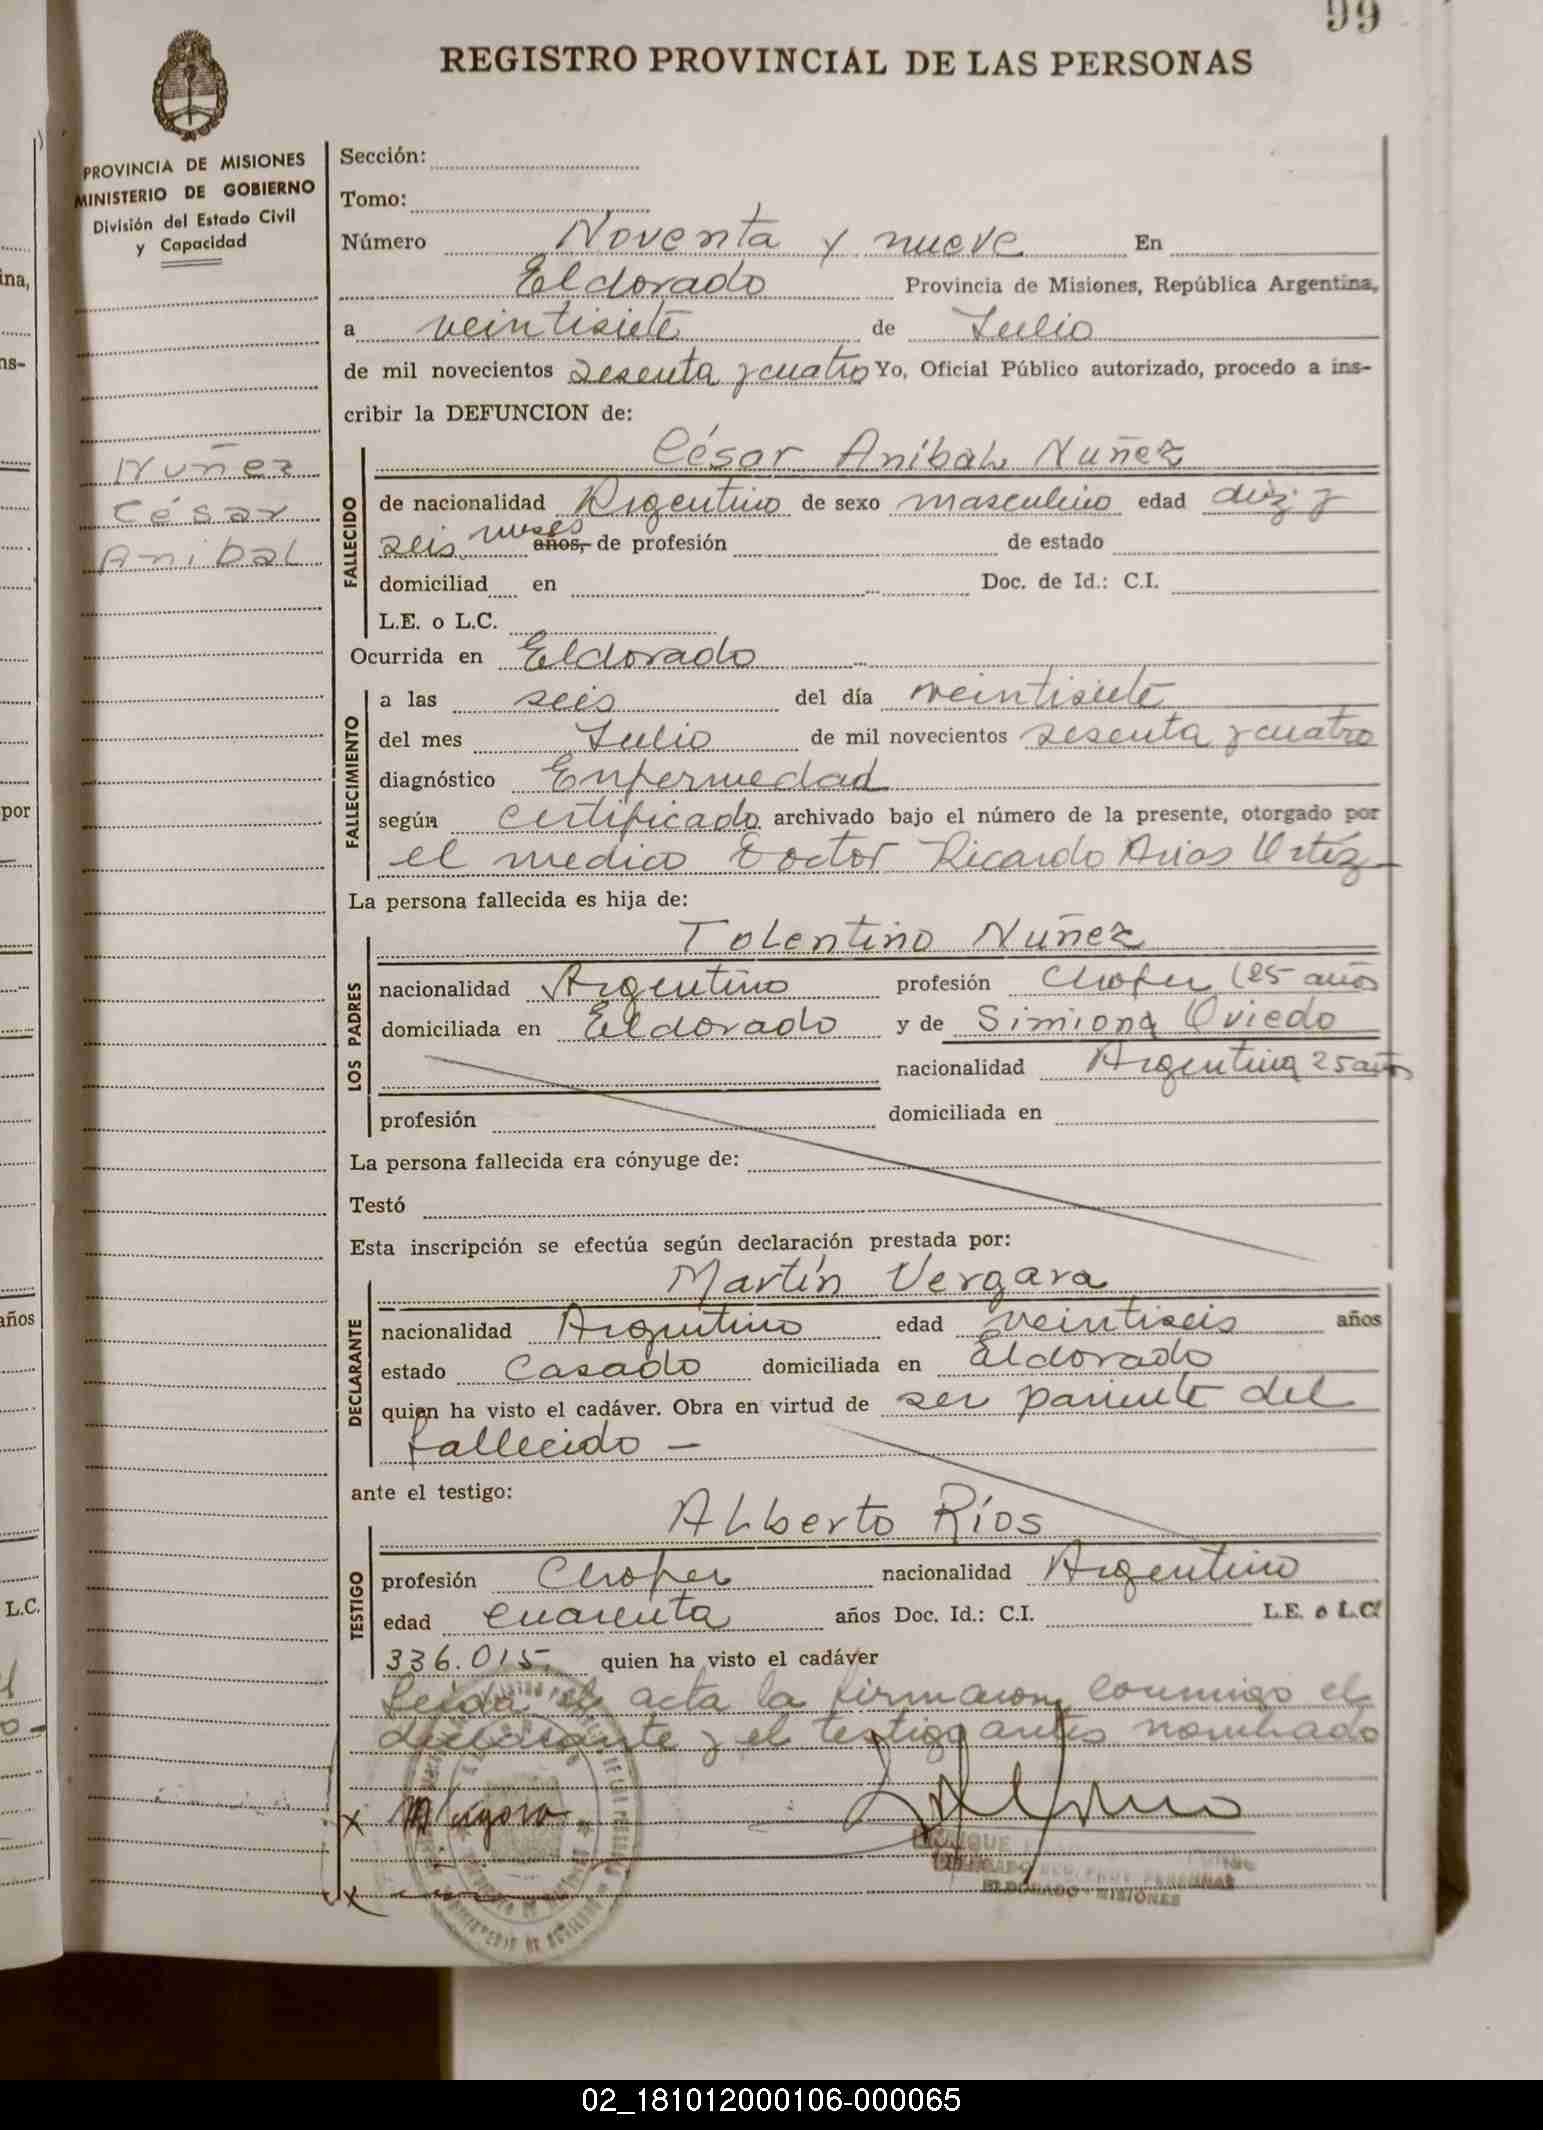 99
REGISTRO PROVINCIAL DE LAS PERSONAS
PROVINCIA DE MISIONES
MINISTERIO DE GOBIERNO
División del Estado Civil
y Capacidad
Nuñez
César
Anibal
Sección:
Tomo:
Número Noventa y nueve En
Eldorado Provincia de Misiones, República Argentina,
a veintisiete de Julio
de mil novecientos sesenta y cuatro Yo, Oficial Público autorizado, procedo a ins-
cribir la DEFUNCION de:
FALLECIDO
César Aníbal Nuñez
de nacionalidad Argentino de sexo masculino edad diez y
seis meses años, de profesión de estado
domiciliad en Doc. de Id.: C.I.
L.E. o L.C.
Ocurrida en Eldorado
FALLECIMIENTO
a las seis del día veintisiete
del mes Julio de mil novecientos sesenta y cuatro
diagnóstico Enfermedad
según certificado archivado bajo el número de la presente, otorgado por
el medico Doctor Ricardo Arias Ortíz
La persona fallecida es hija de:
LOS PADRES
Tolentino Nuñez
nacionalidad Argentino profesión Chofer (25 años
domiciliada en Eldorado y de Simiona Oviedo
nacionalidad Argentina 25 años
profesión domiciliada en
La persona fallecida era cónyuge de:
Testó
Esta inscripción se efectúa según declaración prestada por:
DECLARANTE
Martín Vergara
nacionalidad Argentino edad veintiseis años
estado Casado domiciliada en Eldorado
quien ha visto el cadáver. Obra en virtud de ser pariente del
fallecido —
ante el testigo:
TESTIGO
Alberto Ríos
profesión Chofer nacionalidad Argentino
edad cuarenta años Doc. Id.: C.I. L.E. o L.C.
336.015 quien ha visto el cadáver
Leida el acta la firmaron conmigo el
declarante y el testigo antes nombrado
ELDORADO - MISIONES
ina,
ns-
por
años
L.C.
02_181012000106-000065